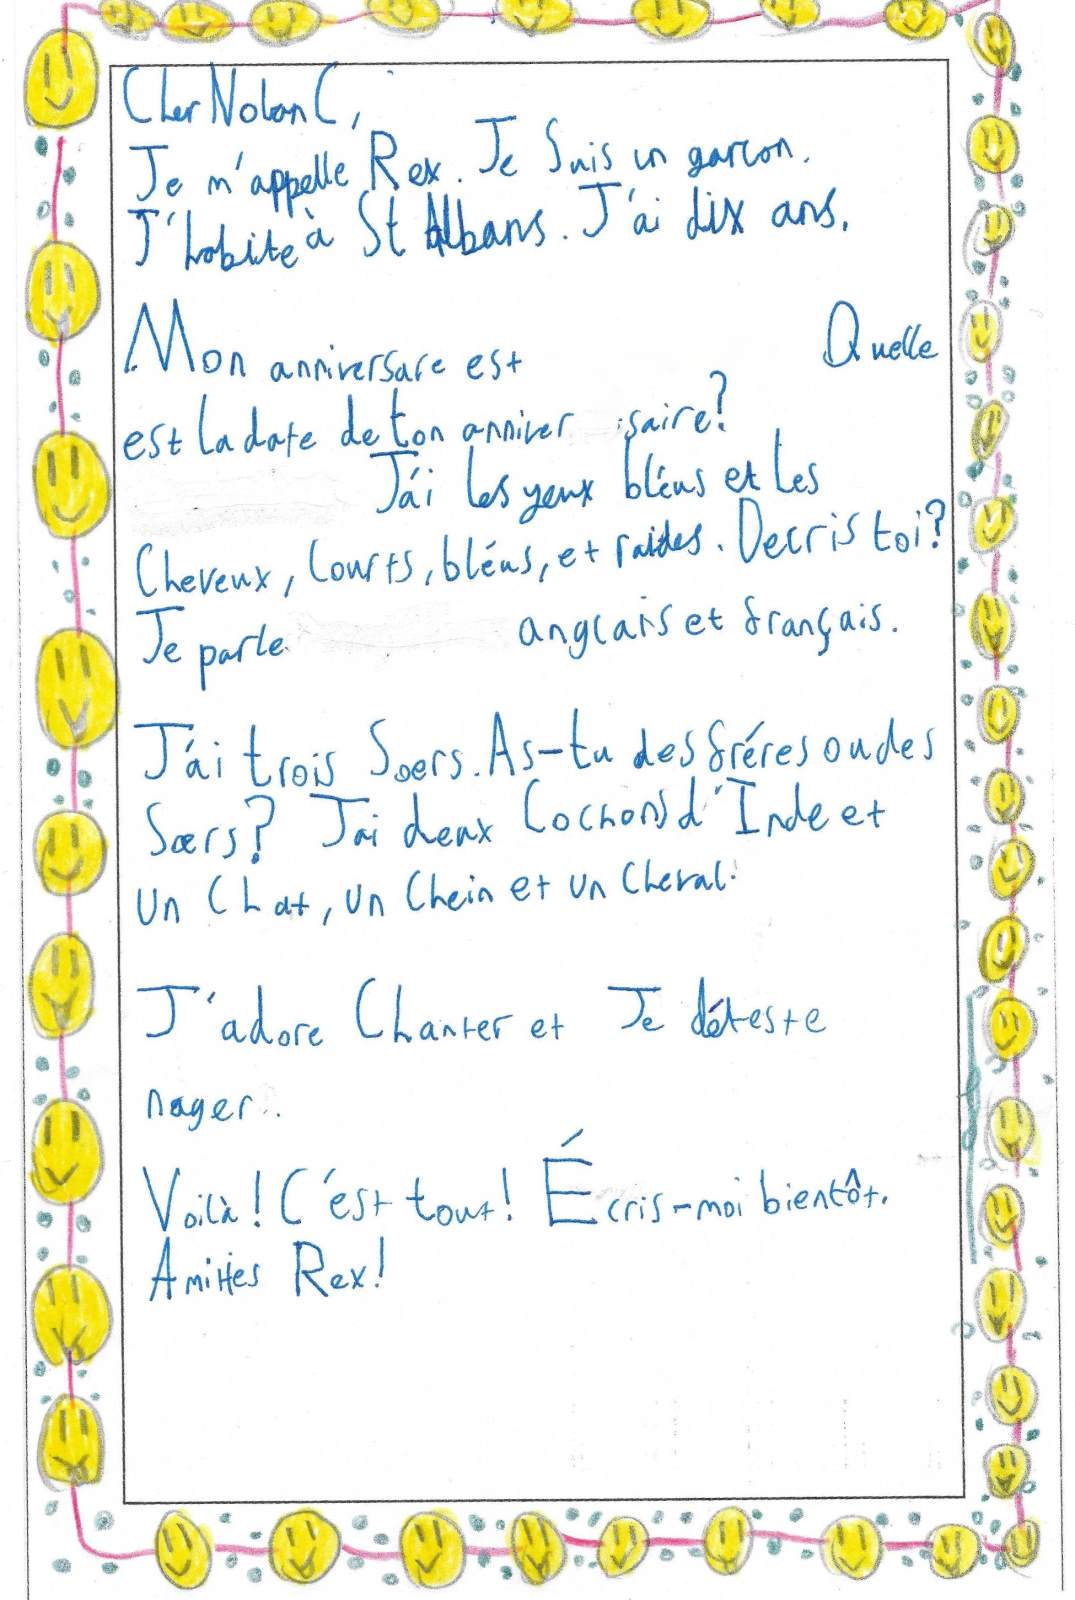 Cher Nolan C,
Je m'appelle Rex. Je Suis un garcon.
J'habite à St Albans. J'ai dix ans.
Mon anniversare est Quelle
est la date de ton anniver saire?
J'ai les yeux bléus et les
Cheveux, Courts, bléus, et raides. Decris toi?
Je parle anglais et français.
J'ai trois Soers. As-tu des fréres ou des
Sœrs? J'ai deux Cochons d'Inde et
un Chat, un Chein et un Cheval.
J'adore Chanter et Je déteste
nager.
Voilà! C'est tout! Écris-moi bientôt.
Amities Rex!